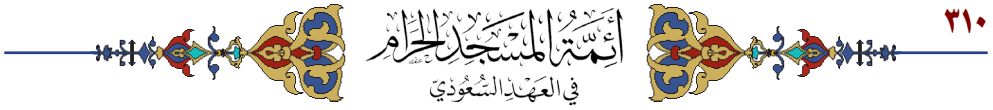 ٣١٠
أَئِمَّةُ المَسْجِدِ الحَرَامِ
فِي العَهْدِ السُّعُودِيّ